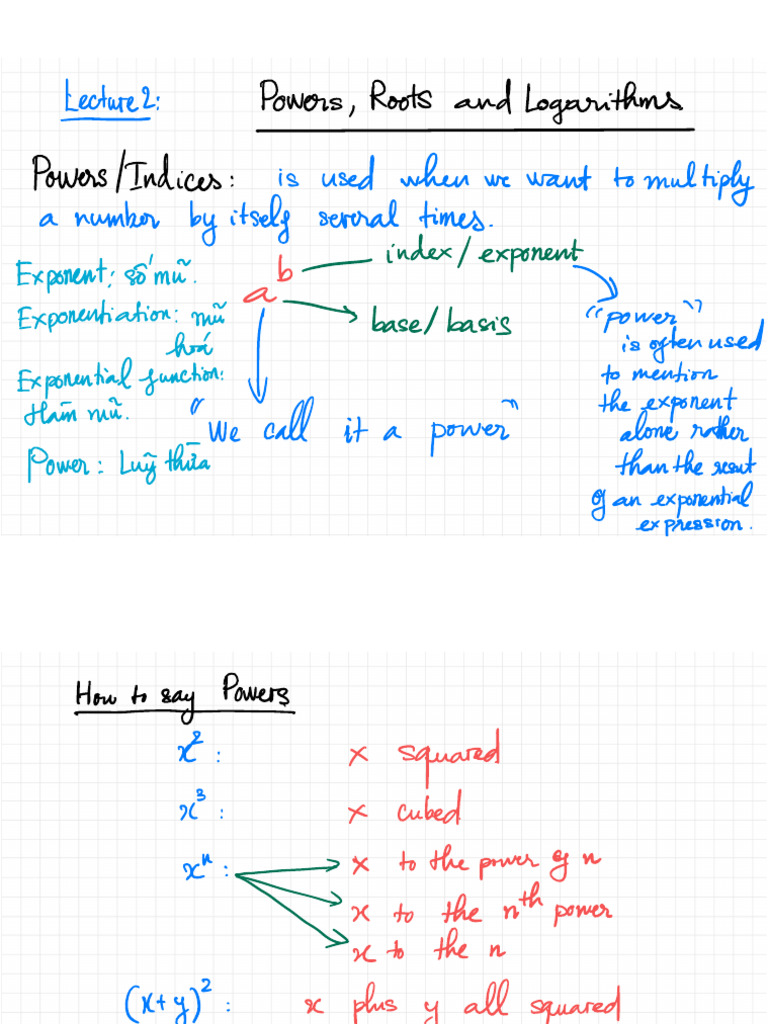 Lecture 2: Powers, Roots and Logarithms
Powers/Indices: is used when we want to multiply
a number by itself several times.
Exponent: số mũ.
Exponentiation: mũ
hoá
Exponential function:
Hàm mũ.
Power: Luỹ thừa
a^b
index/exponent
base/basis
"We call it a power"
"power"
is often used
to mention
the exponent
alone rather
than the result
of an exponential
expression.
How to say Powers
x²: x squared
x³: x cubed
xⁿ: x to the power of n
x to the nth power
x to the n
(x+y)²: x plus y all squared